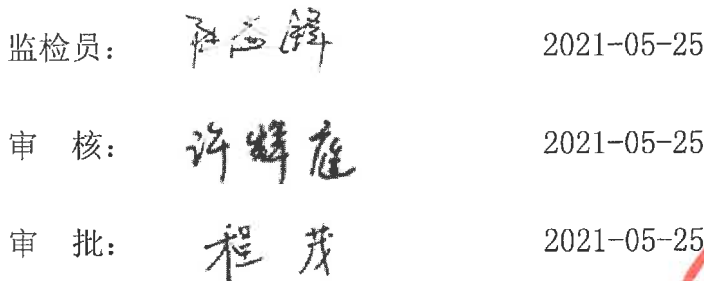 监检员： 2021-05-25
审 核： 许辉庭 2021-05-25
审 批： 程茂 2021-05-25